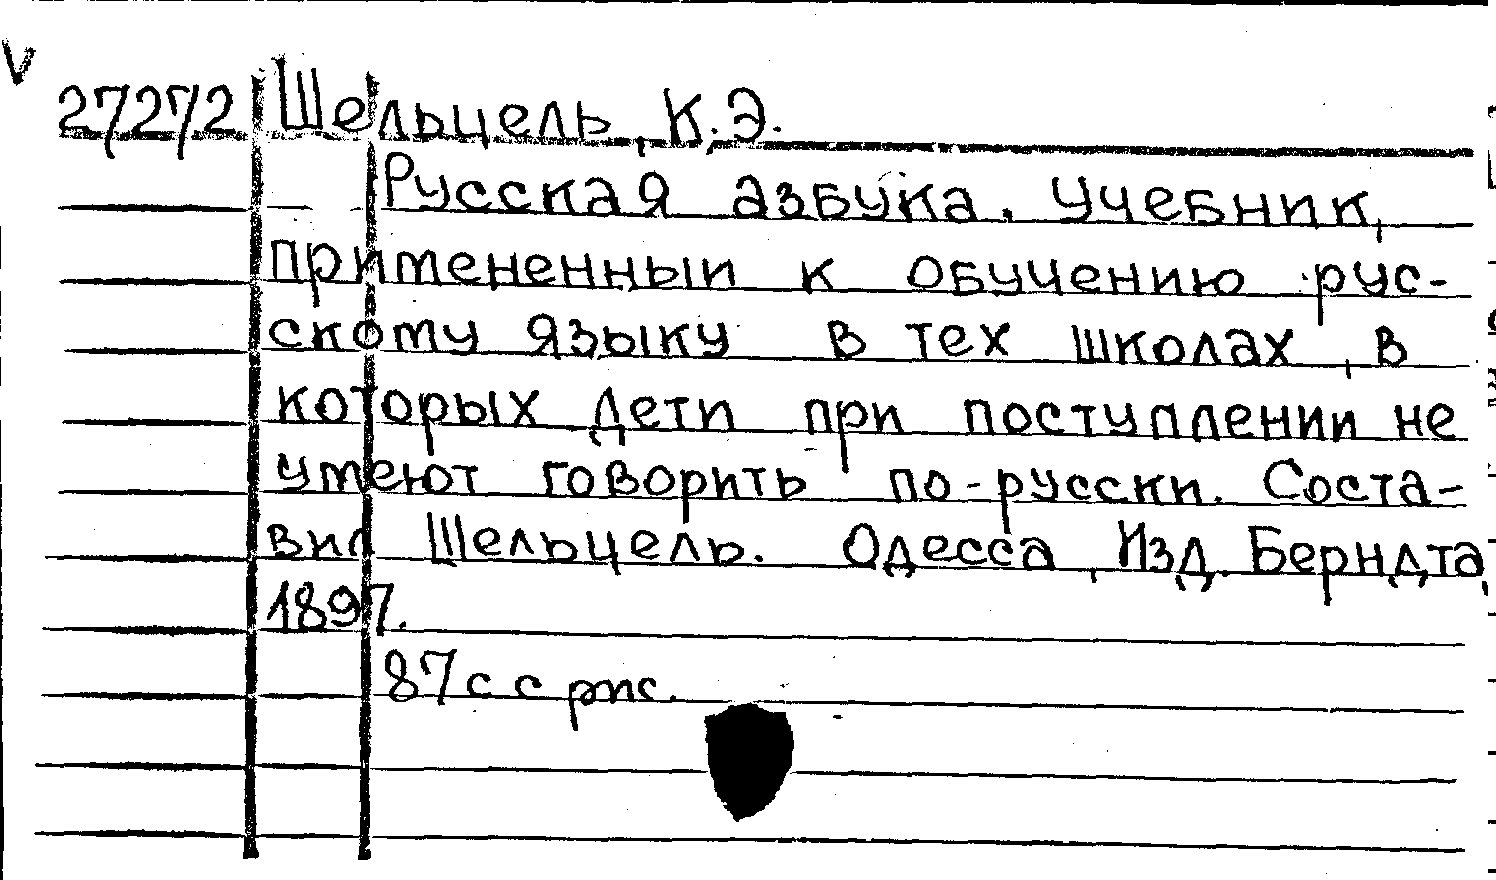 V
27272 Шельцель, К.Э.
Русская азбука. Учебник,
примененный к обучению рус-
скому языку в тех школах, в
которых дети при поступлении не
умеют говорить по-русски. Соста-
вил Шельцель. Одесса, Изд. Берндта,
1897.
87 с с рис.